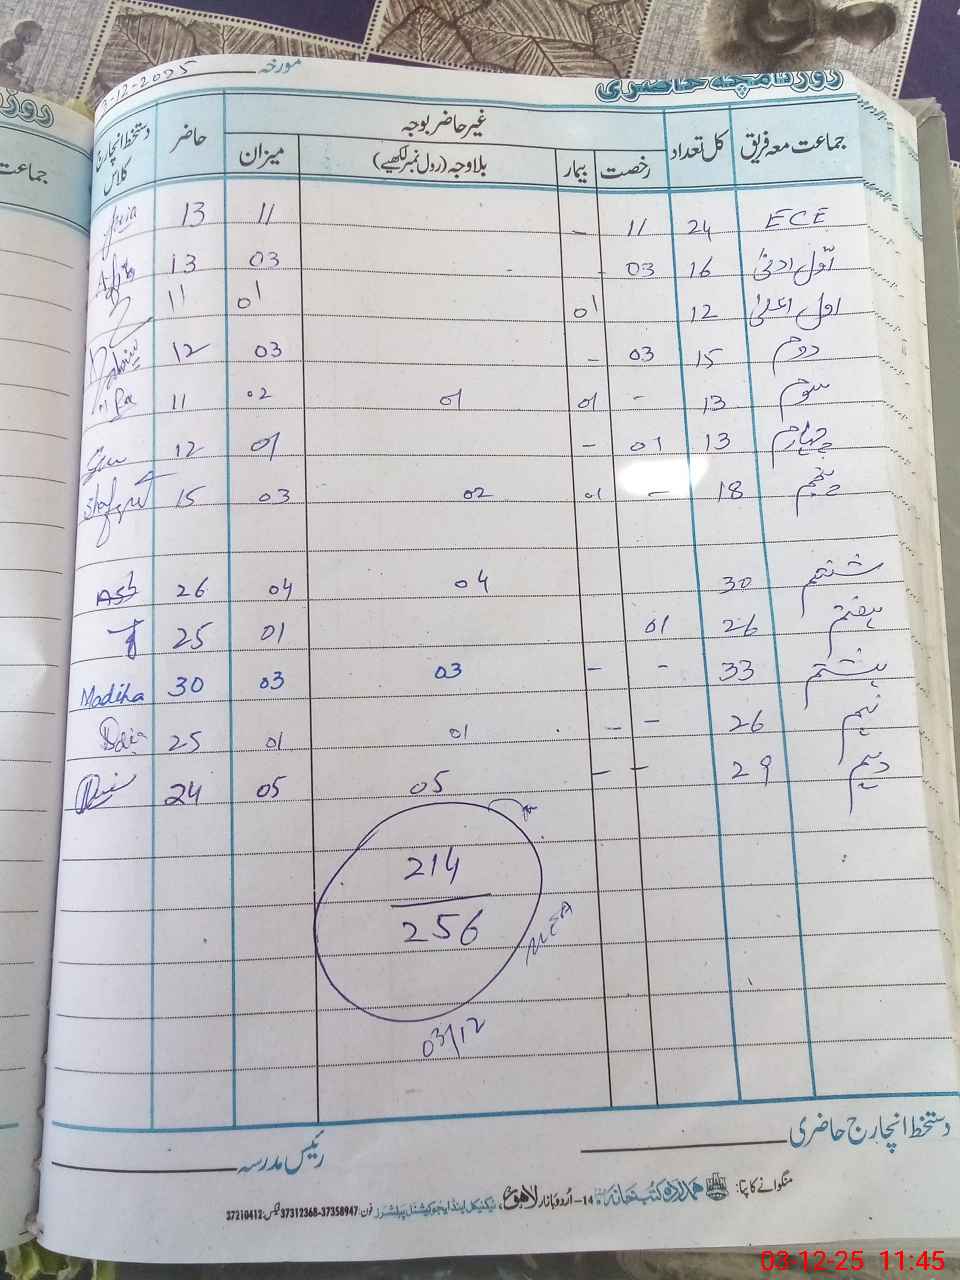 روزنامچہ حاضری
مورخہ 3-12-2025
جماعت معہ فریق کل تعداد غیر حاضر بوجہ حاضر دستخط انچارج کلاس
رخصت بیمار بلاوجہ (رول نمبر لکھیے) میزان
ECE 24 11 - 11 13
اول ادنیٰ 16 03 - 03 13
اول اعلیٰ 12 01 01 11
دوم 15 03 - 03 12
سوم 13 - 01 01 02 11
چہارم 13 01 - 01 12
پنجم 18 - 01 02 03 15
ششم 30 04 04 26
ہفتم 26 01 01 25
ہشتم 33 - - 03 03 30 Madiha
نہم 26 - - 01 01 25
دہم 29 - - 05 05 24
214
256
03/12
دستخط انچارج حاضری
رئیس مدرسہ
منگوانے کا پتا: ہمدرد کتب خانہ 14-اُردو بازار لاہور، ٹیکنیکل اینڈ ایجوکیشنل پبلشرز فون: 37312368-37358947 فیکس: 37210412
روز
جماعت
03-12-25 11:45